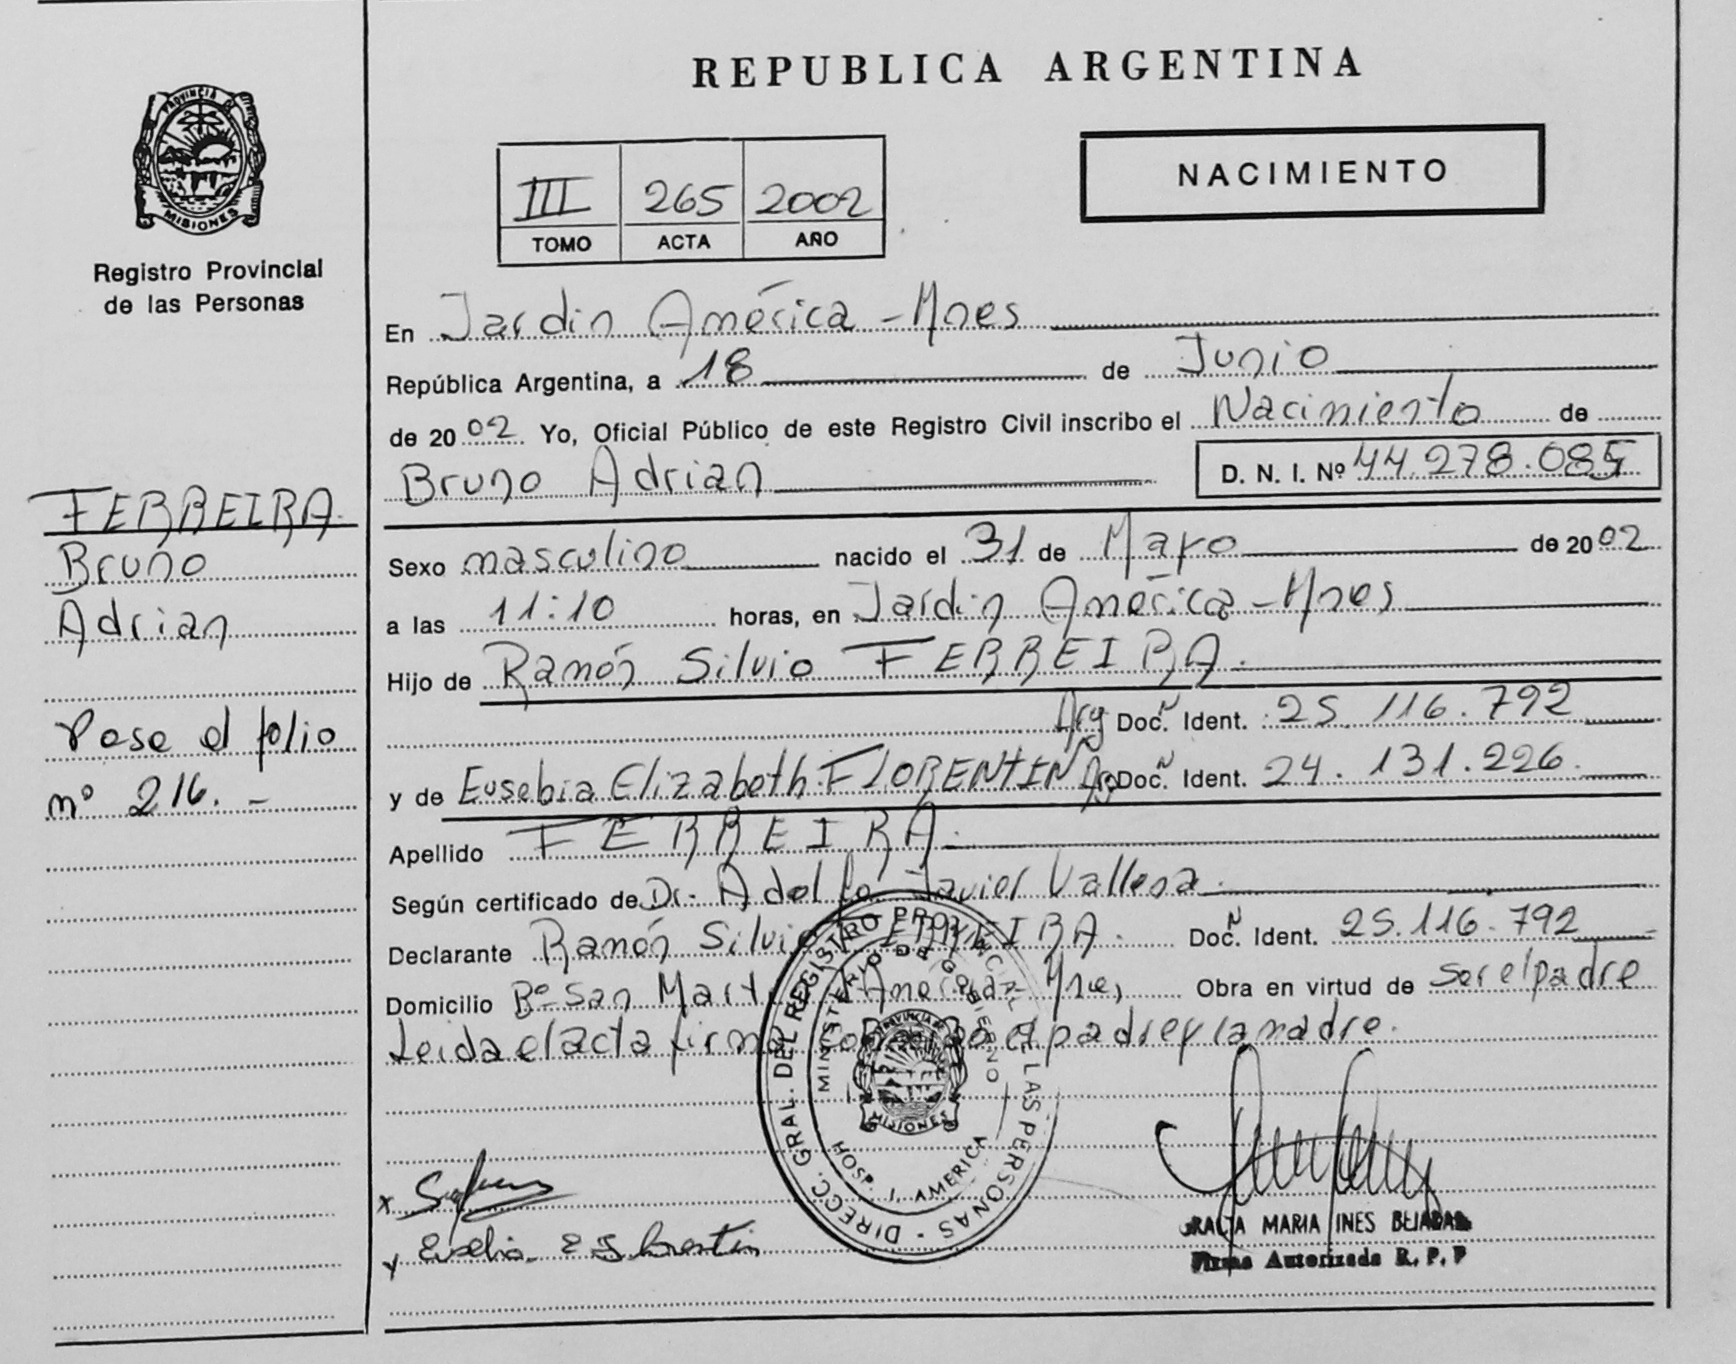 REPUBLICA ARGENTINA
PROVINCIA DE
MISIONES
Registro Provincial
de las Personas
III 265 2002
TOMO ACTA AÑO
NACIMIENTO
En Jardin América - Mnes
República Argentina, a 18 de Junio
de 20 02 Yo, Oficial Público de este Registro Civil inscribo el Nacimiento de
Bruno Adrian D. N. I. Nº 44.278.085
FERREIRA
Bruno
Adrian
Pase al folio
nº 216. -
Sexo masculino nacido el 31 de Mayo de 20 02
a las 11:10 horas, en Jardin América - Mnes
Hijo de Ramón Silvio FERREIRA.
Arg Doc. N Ident. 25.116.792
y de Eusebia Elizabeth FLORENTIN Arg Doc. N Ident. 24.131.226.
Apellido FERREIRA.
Según certificado de Dr. Adolfo Javier Vallesa.
Declarante Ramón Silvio FERREIRA. Doc. N Ident. 25.116.792
Domicilio Bº San Mart América Mnes, Obra en virtud de ser el padre
Leida el acta firma el padre y la madre.
DIRECC. GRAL. DEL REGISTRO PROVINCIAL DE LAS PERSONAS
MINISTERIO DE GOBIERNO
PROVINCIA DE
MISIONES
HOSP. J. AMERICA
x
y
MARIA INES
Firma Autorizada R. P. P